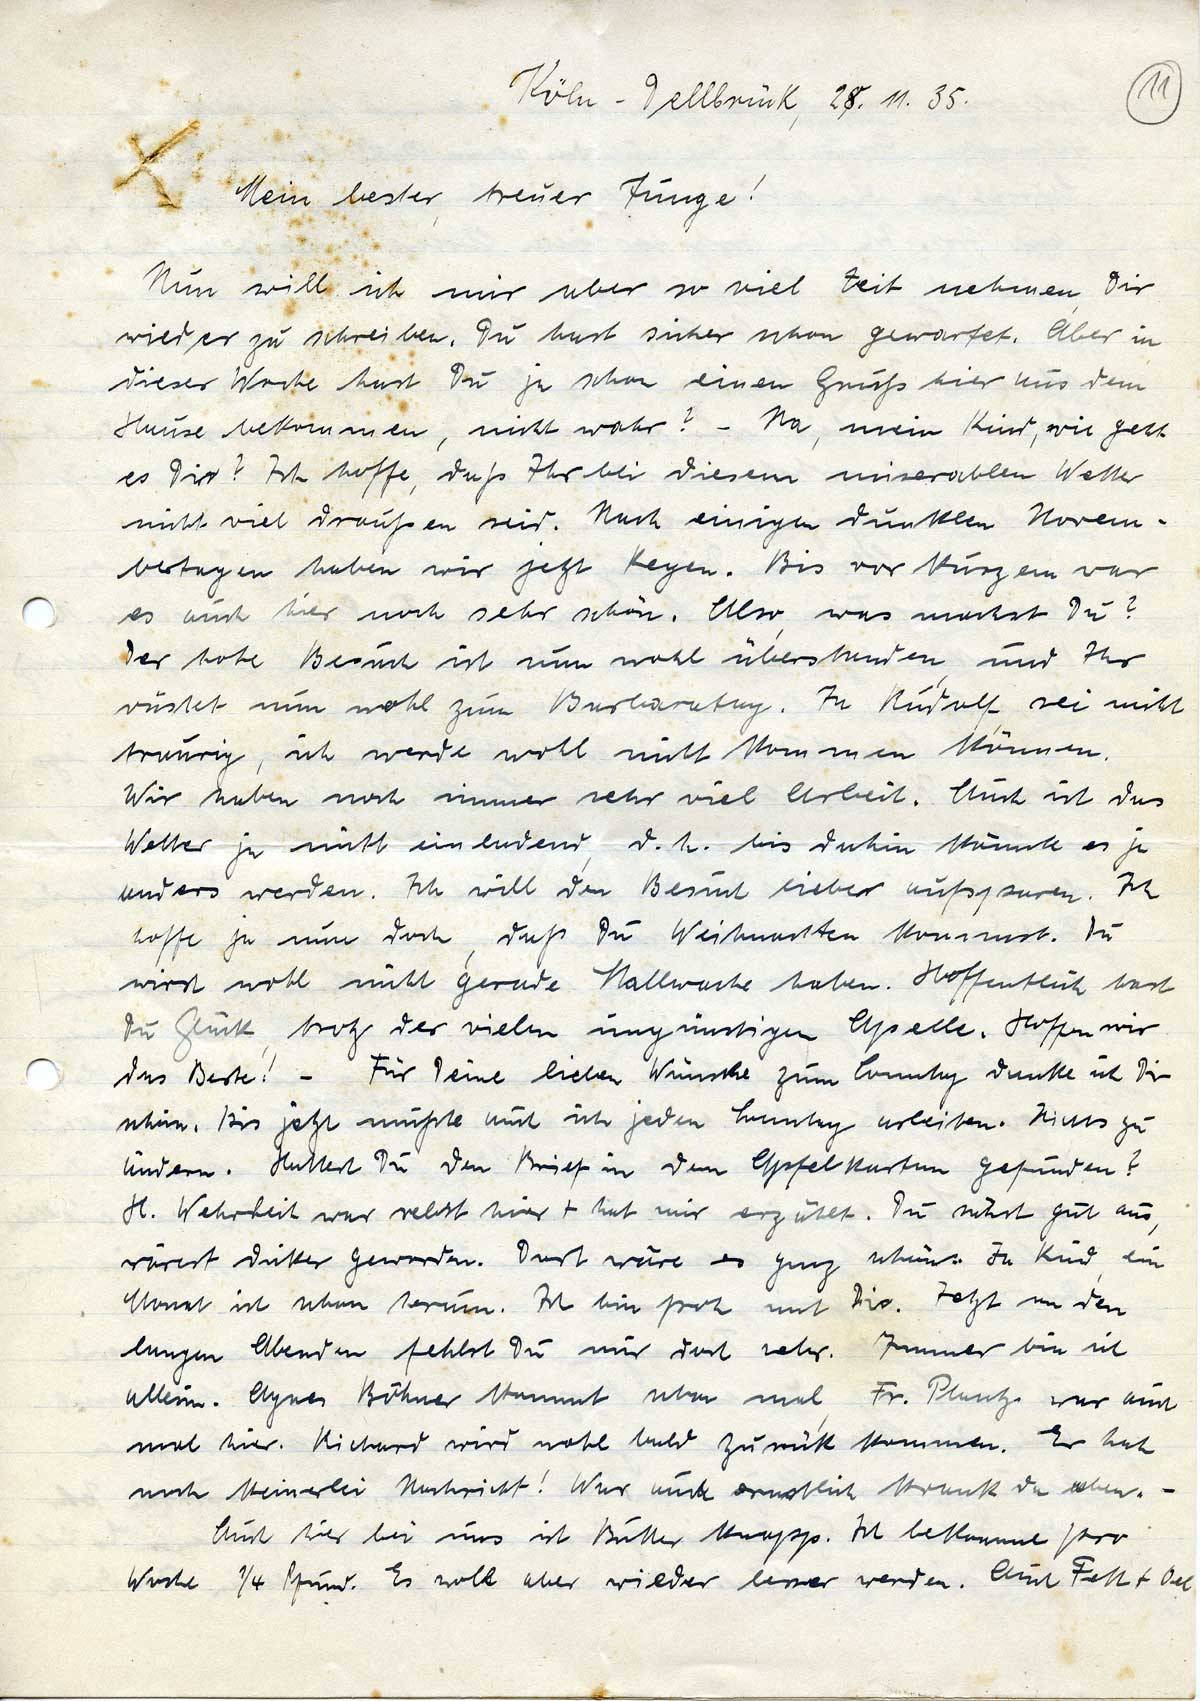 11
Köln - Dellbrück, 28. 11. 35.
Mein bester, treuer Junge!
Nun will ich mir aber so viel Zeit nehmen, Dir
wieder zu schreiben. Du hast sicher schon gewartet. Aber in
dieser Woche hast Du ja schon einen Gruß hier aus dem
Hause bekommen, nicht wahr? - Na, mein Kind, wie geht
es Dir? Ich hoffe, daß Ihr bei diesem miserablen Wetter
nicht viel draußen seid. Nach einigen dunklen Novem-
bertagen haben wir jetzt Regen. Bis vor Kurzem war
es auch hier noch sehr schön. Also, was machst Du?
Der hohe Besuch ist nun wohl überstanden, und Ihr
rüstet nun wohl zum Barbaratag. Ja Rudolf, sei nicht
traurig, ich werde wohl nicht kommen können.
Wir haben noch immer sehr viel Arbeit. Auch ist das
Wetter ja nicht einladend, d. h. bis dahin könnte es ja
anders werden. Ich will den Besuch lieber aufsparen. Ich
hoffe ja nun doch, daß Du Weihnachten kommst. Du
wirst wohl nicht gerade Stallwache haben. Hoffentlich hast
Du Glück, trotz der vielen ungünstigen Apelle. Hoffen wir
das Beste! - Für Deine lieben Wünsche zum Sonntag danke ich Dir
schön. Bis jetzt mußte auch ich jeden Sonntag arbeiten. Nichts zu
ändern. Hattest Du den Brief in dem Apfelkarton gefunden?
H. Wehrheit war selbst hier + hat mir erzählt. Du sähst gut aus,
wärest dicker geworden. Dort wäre es ganz schön. Ja Kind, ein
Monat ist schon herum. Ich bin froh mit Dir. Jetzt an den
langen Abenden fehlst Du mir doch sehr. Immer bin ich
allein. Agnes Böhner kommt schon mal, Fr. Plantz war auch
mal hier. Richard wird wohl bald zurück kommen. Er hat
noch keinerlei Nachricht! War auch ernstlich krank da oben. -
Auch hier bei uns ist Butter knapp. Ich bekomme pro
Woche 1/4 Pfund. Es soll aber wieder besser werden. Auch Fett + Oel